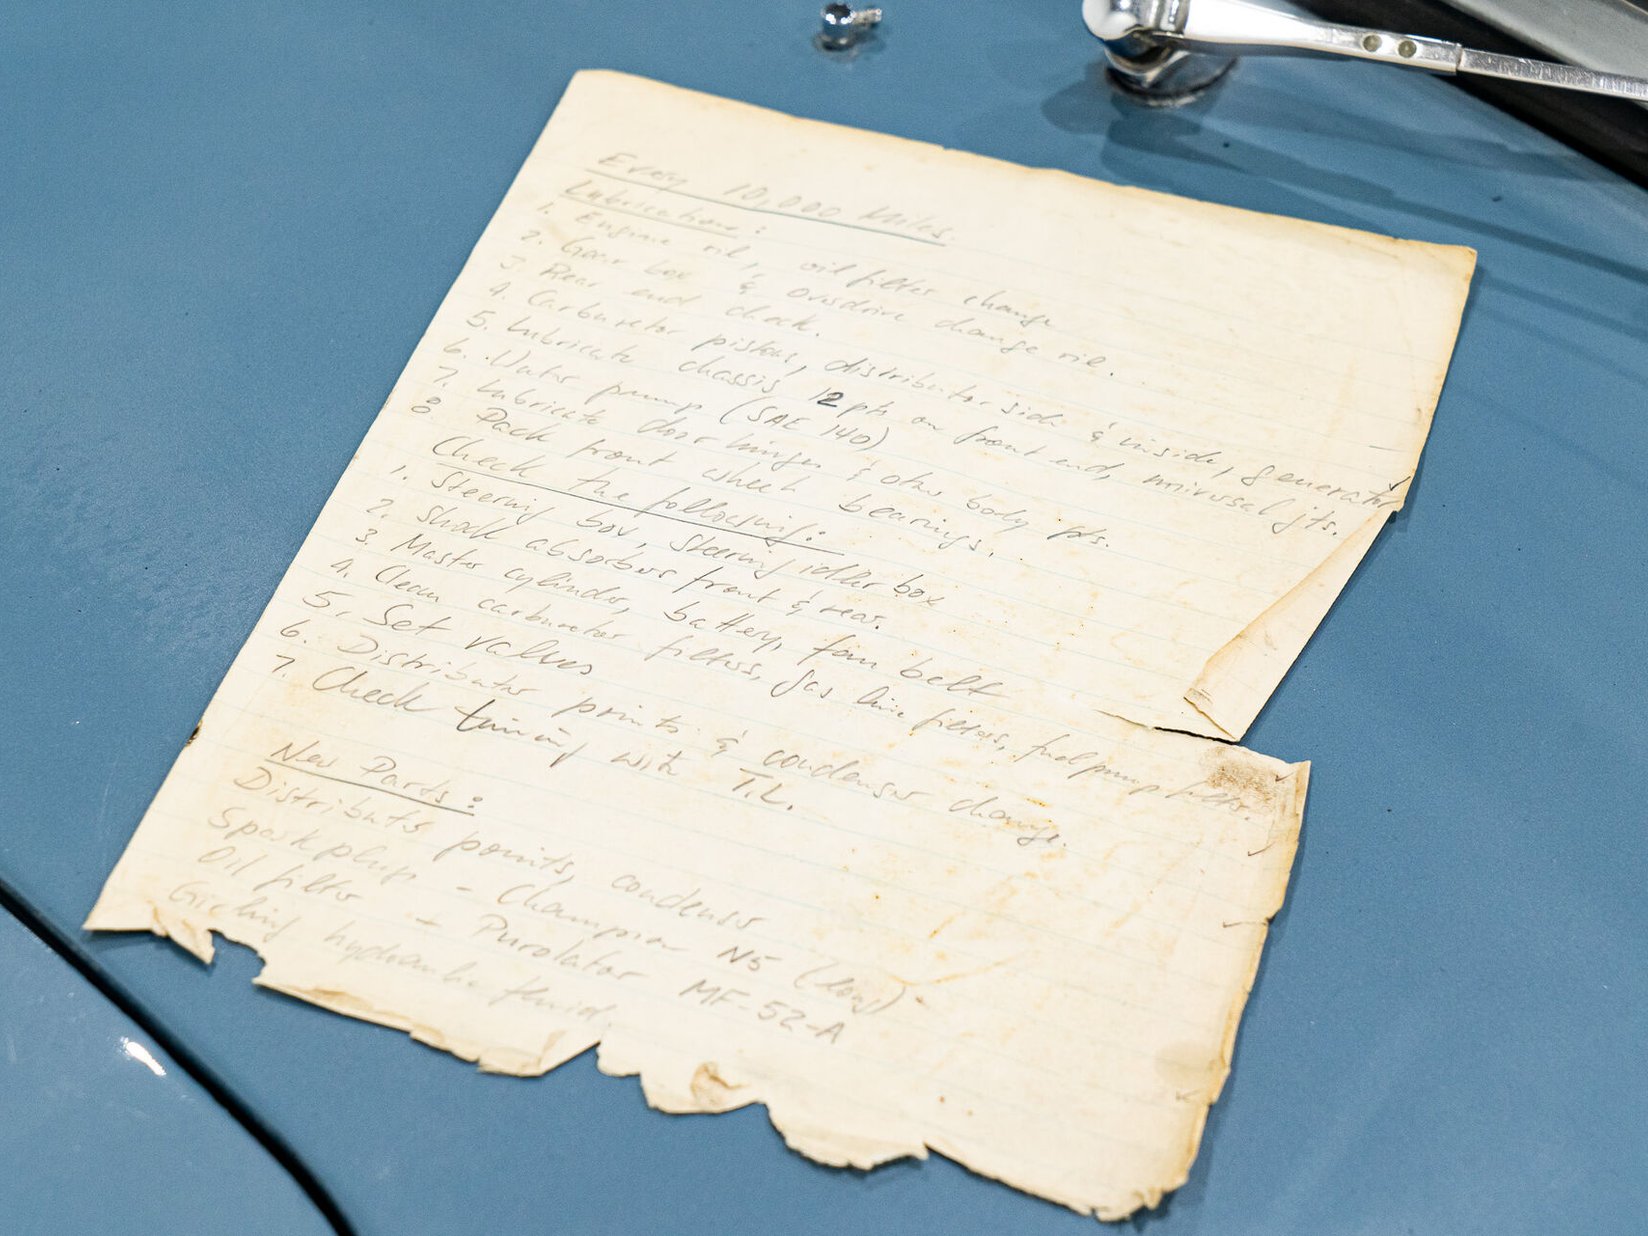 Every 10,000 Miles.
Lubrication:
1. Engine oil, oil filter change
2. Gear box & overdrive change oil.
3. Rear end check.
4. Carburetor pistons, distributor side & inside, generator
5. Lubricate chassis 12 pts on front end, universal jts.
6. Water pump (SAE 140)
7. Lubricate door hinges & other body pts.
8 Pack front wheel bearings.
Check the following:
1. Steering box, steering idler box
2. Shock absorbers front & rear.
3. Master cylinder, battery, fan belt
4. Clean carburetor filters, gas line filters, fuel pump filter.
5. Set valves
6. Distributor points & condenser change.
7. Check timing with T.L.
New Parts:
Distributor points, condenser
Spark plugs - Champion N5 (long)
Oil filter - Purolator MF-52-A
Girling hydraulic fluid